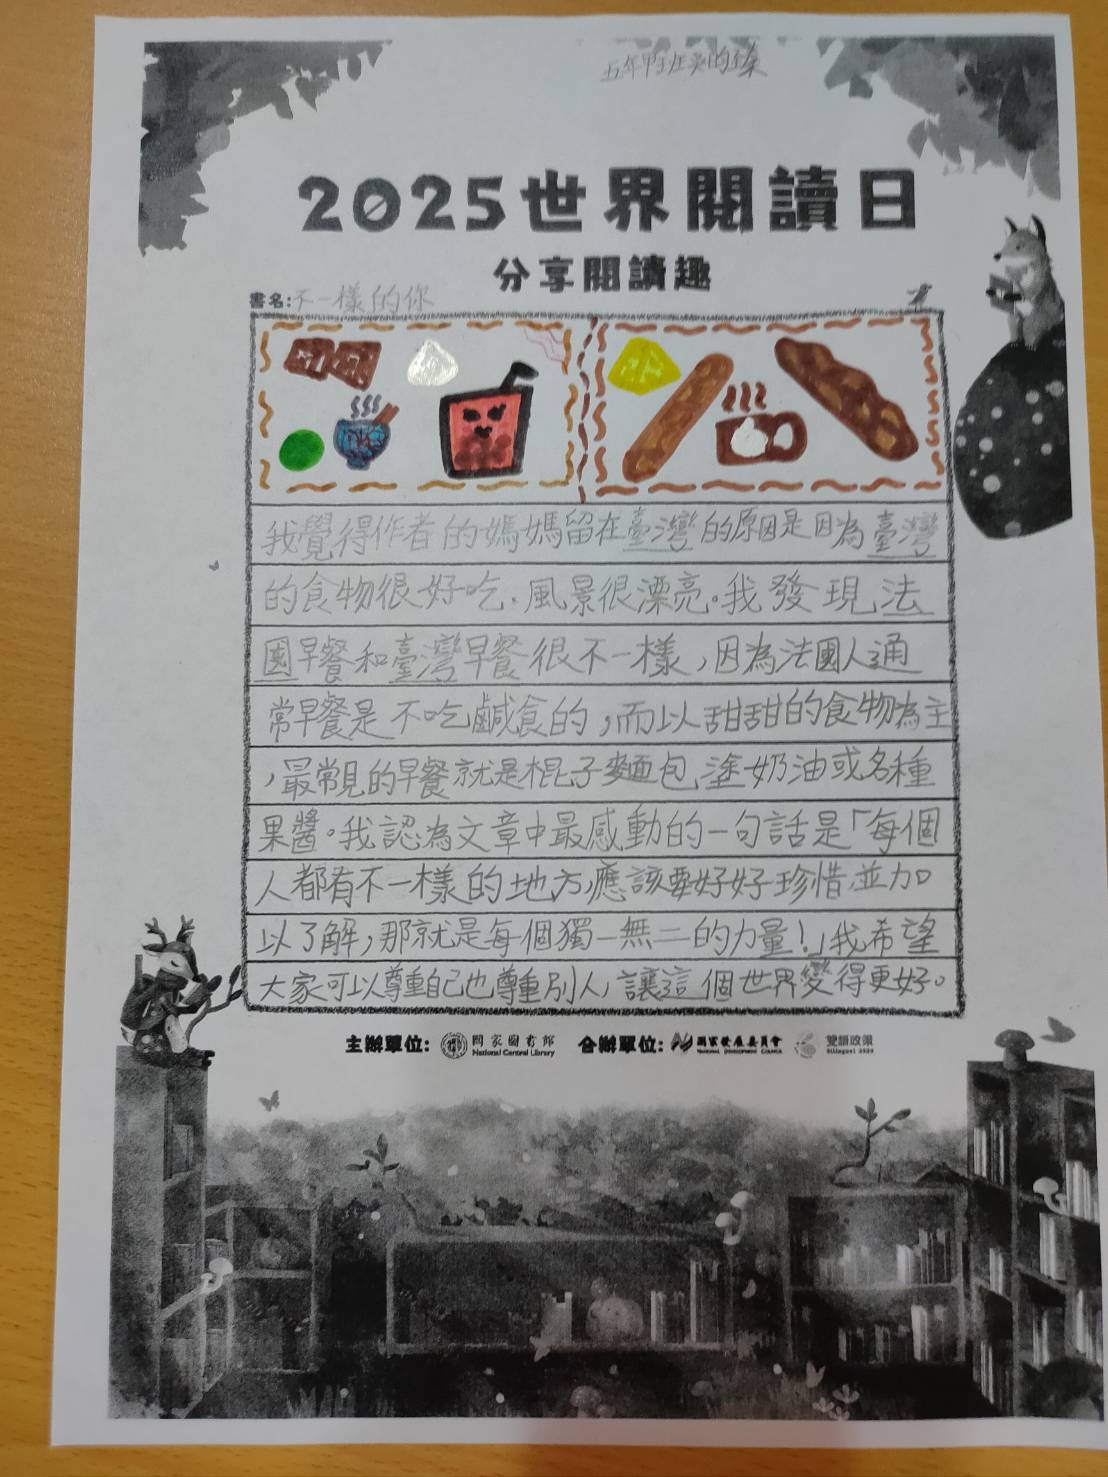 五年甲班
2025世界閱讀日
分享閱讀趣
書名:不一樣的你
我覺得作者的媽媽留在臺灣的原因是因為臺灣
的食物很好吃、風景很漂亮。我發現法
國早餐和臺灣早餐很不一樣,因為法國人通
常早餐是不吃鹹食的,而以甜甜的食物為主
,最常見的早餐就是棍子麵包塗奶油或各種
果醬。我認為文章中最感動的一句話是「每個
人都有不一樣的地方,應該要好好珍惜並加
以了解,那就是每個獨一無二的力量!」我希望
大家可以尊重自己也尊重別人,讓這個世界變得更好。
主辦單位: 國家圖書館 National Central Library 合辦單位: 國家發展委員會 NATIONAL DEVELOPMENT COUNCIL 雙語政策 Bilingual 2030